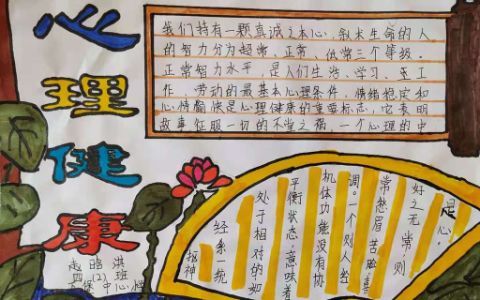 心理健康
我们持有一颗真诚之本心，叙术生命的人
的智力分为超常、正常、低常三个等级。
正常智力水平，是人们生活、学习、工
作、劳动的最基本心理条件，情绪稳定和
心情愉快是心理健康的重要标志，它表明
一个心理的中
是心
好之无常，则
常愁眉苦脸喜
调。一个则人经
机体功能没有协
平衡状态，意味着
处于相对的如
经系统
枢神
四（2）班
中心校